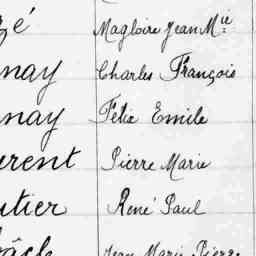 zé Magloire Jean M.ie
nay Charles François
nay Félix Emile
erent Pierre Marie
utier René Paul
Jean Marie Pierre